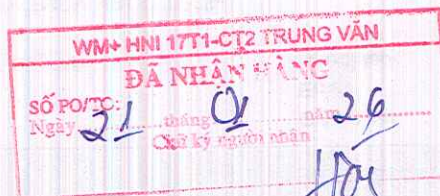 WM+ HNI 17T1-CT2 TRUNG VĂN
ĐÃ NHẬN HÀNG
SỐ PO/TC:
Ngày 21 tháng 01 năm 26
Chữ ký người nhận